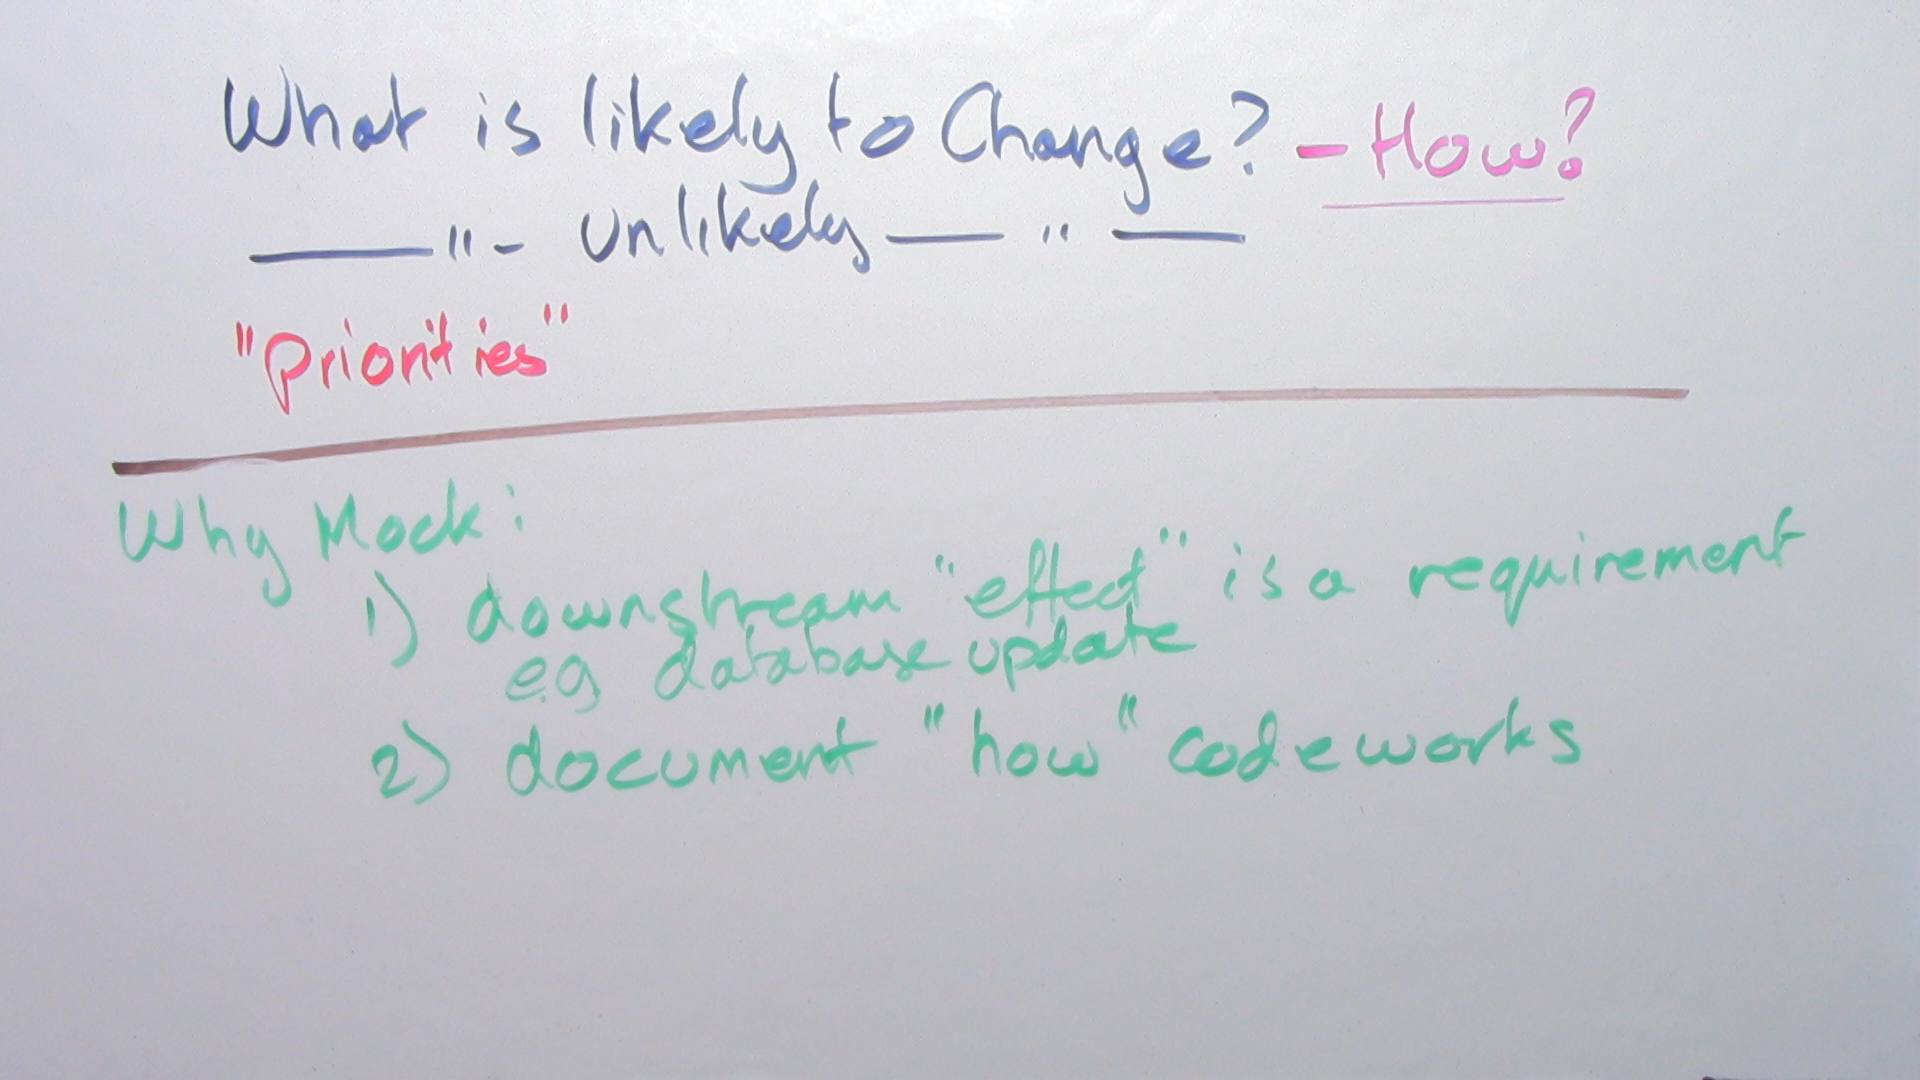 What is likely to Change? - How?
—— " - unlikely —— " ——
"Priorities"
Why Mock:
1) downstream "effect" is a requirement
e.g. database update
2) document "how" code works